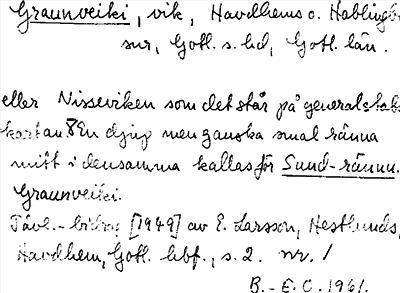 Graunveiki, vik, Havdhems o. Hablingbo
snr, Gotl. s. hd, Gotl. län.
eller Nisseviken som det står på generalstabs
kartan. En djup men ganska smal ränna
mitt i densamma kallas för Sund-rännu.
Graunveiki.
Tävl.-bidrag [1949] av E. Larsson, Hestlunds,
Havdhem, Gotl. hbf., s. 2. nr. 1
B.-E. C. 1961.